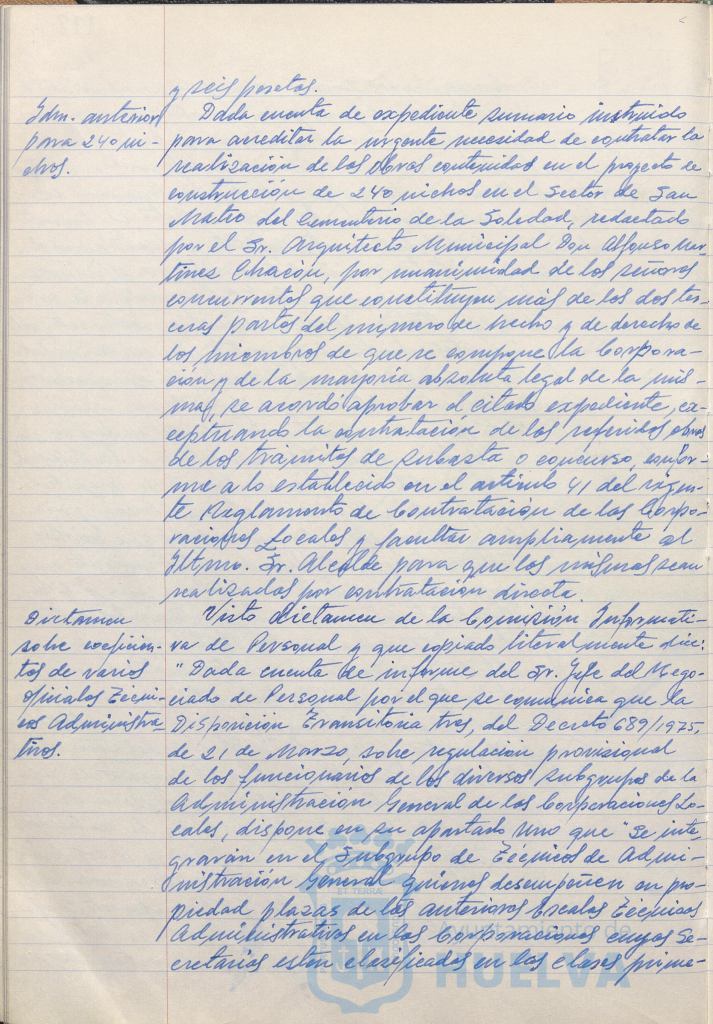 y seis pesetas.
Idm. anterior
para 240 ni-
chos.
Dada cuenta de expediente sumario instruido
para acreditar la urgente necesidad de contratar la
realización de las obras contenidas en el proyecto de
construcción de 240 nichos en el Sector de San
Mateo del Cementerio de la Soledad, redactado
por el Sr. Arquitecto Municipal Don Alfonso Mar-
tínez Chacón, por unanimidad de los señores
concurrentes que constituyen más de las dos ter-
ceras partes del número de hecho y de derecho de
los miembros de que se compone la Corpora-
ción y de la mayoría absoluta legal de la mis-
ma, se acordó aprobar el citado expediente, ex-
ceptuando la contratación de las referidas obras
de los trámites de subasta o concurso, confor-
me a lo establecido en el artículo 41 del vigen-
te Reglamento de Contratación de las Corpo-
raciones Locales y facultar ampliamente al
Iltmo. Sr. Alcalde para que las mismas sean
realizadas por contratación directa.
Dictamen
sobre coeficien-
tes de varios
oficiales Técni-
cos Administra-
tivos.
Visto dictamen de la Comisión Informati-
va de Personal y que copiado literalmente dice:
"Dada cuenta de informe del Sr. Jefe del Nego-
ciado de Personal por el que se comunica que la
Disposición Transitoria tres, del Decreto 689/1975,
de 21 de Marzo, sobre regulación provisional
de los funcionarios de los diversos subgrupos de la
Administración General de las Corporaciones Lo-
cales, dispone en su apartado uno que "Se inte-
grarán en el Subgrupo de Técnicos de Admi-
nistración General quienes desempeñen en pro-
piedad plazas de las anteriores Escalas Técnicos
Administrativos en las Corporaciones cuyas Se-
cretarías estén clasificadas en las clases prime-
ET TERRÆ
Ayuntamiento de
HUELVA